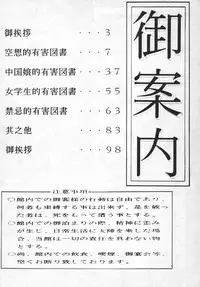 御案内
御挨拶・・・3
空想的有害図書・・・7
中国娘的有害図書・・・37
女学生的有害図書・・・55
禁忌的有害図書・・・63
其之他・・・83
御挨拶・・・98
注意事項
○館内での御客様の行動は自由であり、
何者も束縛する事は出来ず、是を破っ
た者は、死をもって償う事とする。
○館内での御泊まりの際、精神に歪み
が生じ、日常生活に支障を来した場
合、当館は一切の責任を負わない物
とする。
○尚、館内での飲食、喫煙、御宴会等、
堅くお断り致しております。